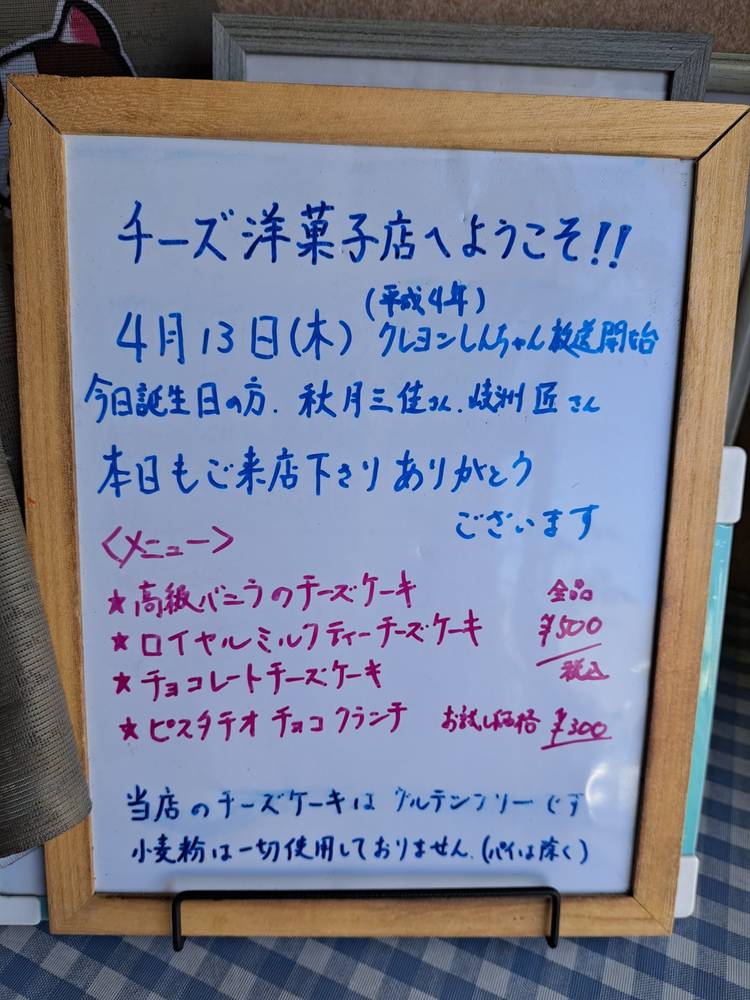 チーズ洋菓子店へようこそ!!
(平成4年)
4月13日(木) クレヨンしんちゃん放送開始
今日誕生日の方. 秋月三佳さん. 岐洲匠さん
本日もご来店下さりありがとう
ございます
<メニュー>
★高級バニラのチーズケーキ 全品
★ロイヤルミルクティーチーズケーキ ¥500
★チョコレートチーズケーキ 税込
★ピスタチオチョコクランチ お試し価格 ¥300
当店のチーズケーキはグルテンフリーです
小麦粉は一切使用しておりません.(パイは除く)